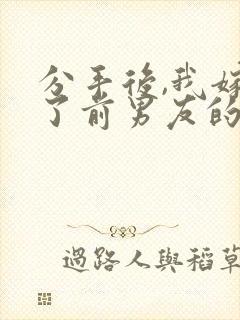 分手後,我嫁
了前男友的
過路人與稻草